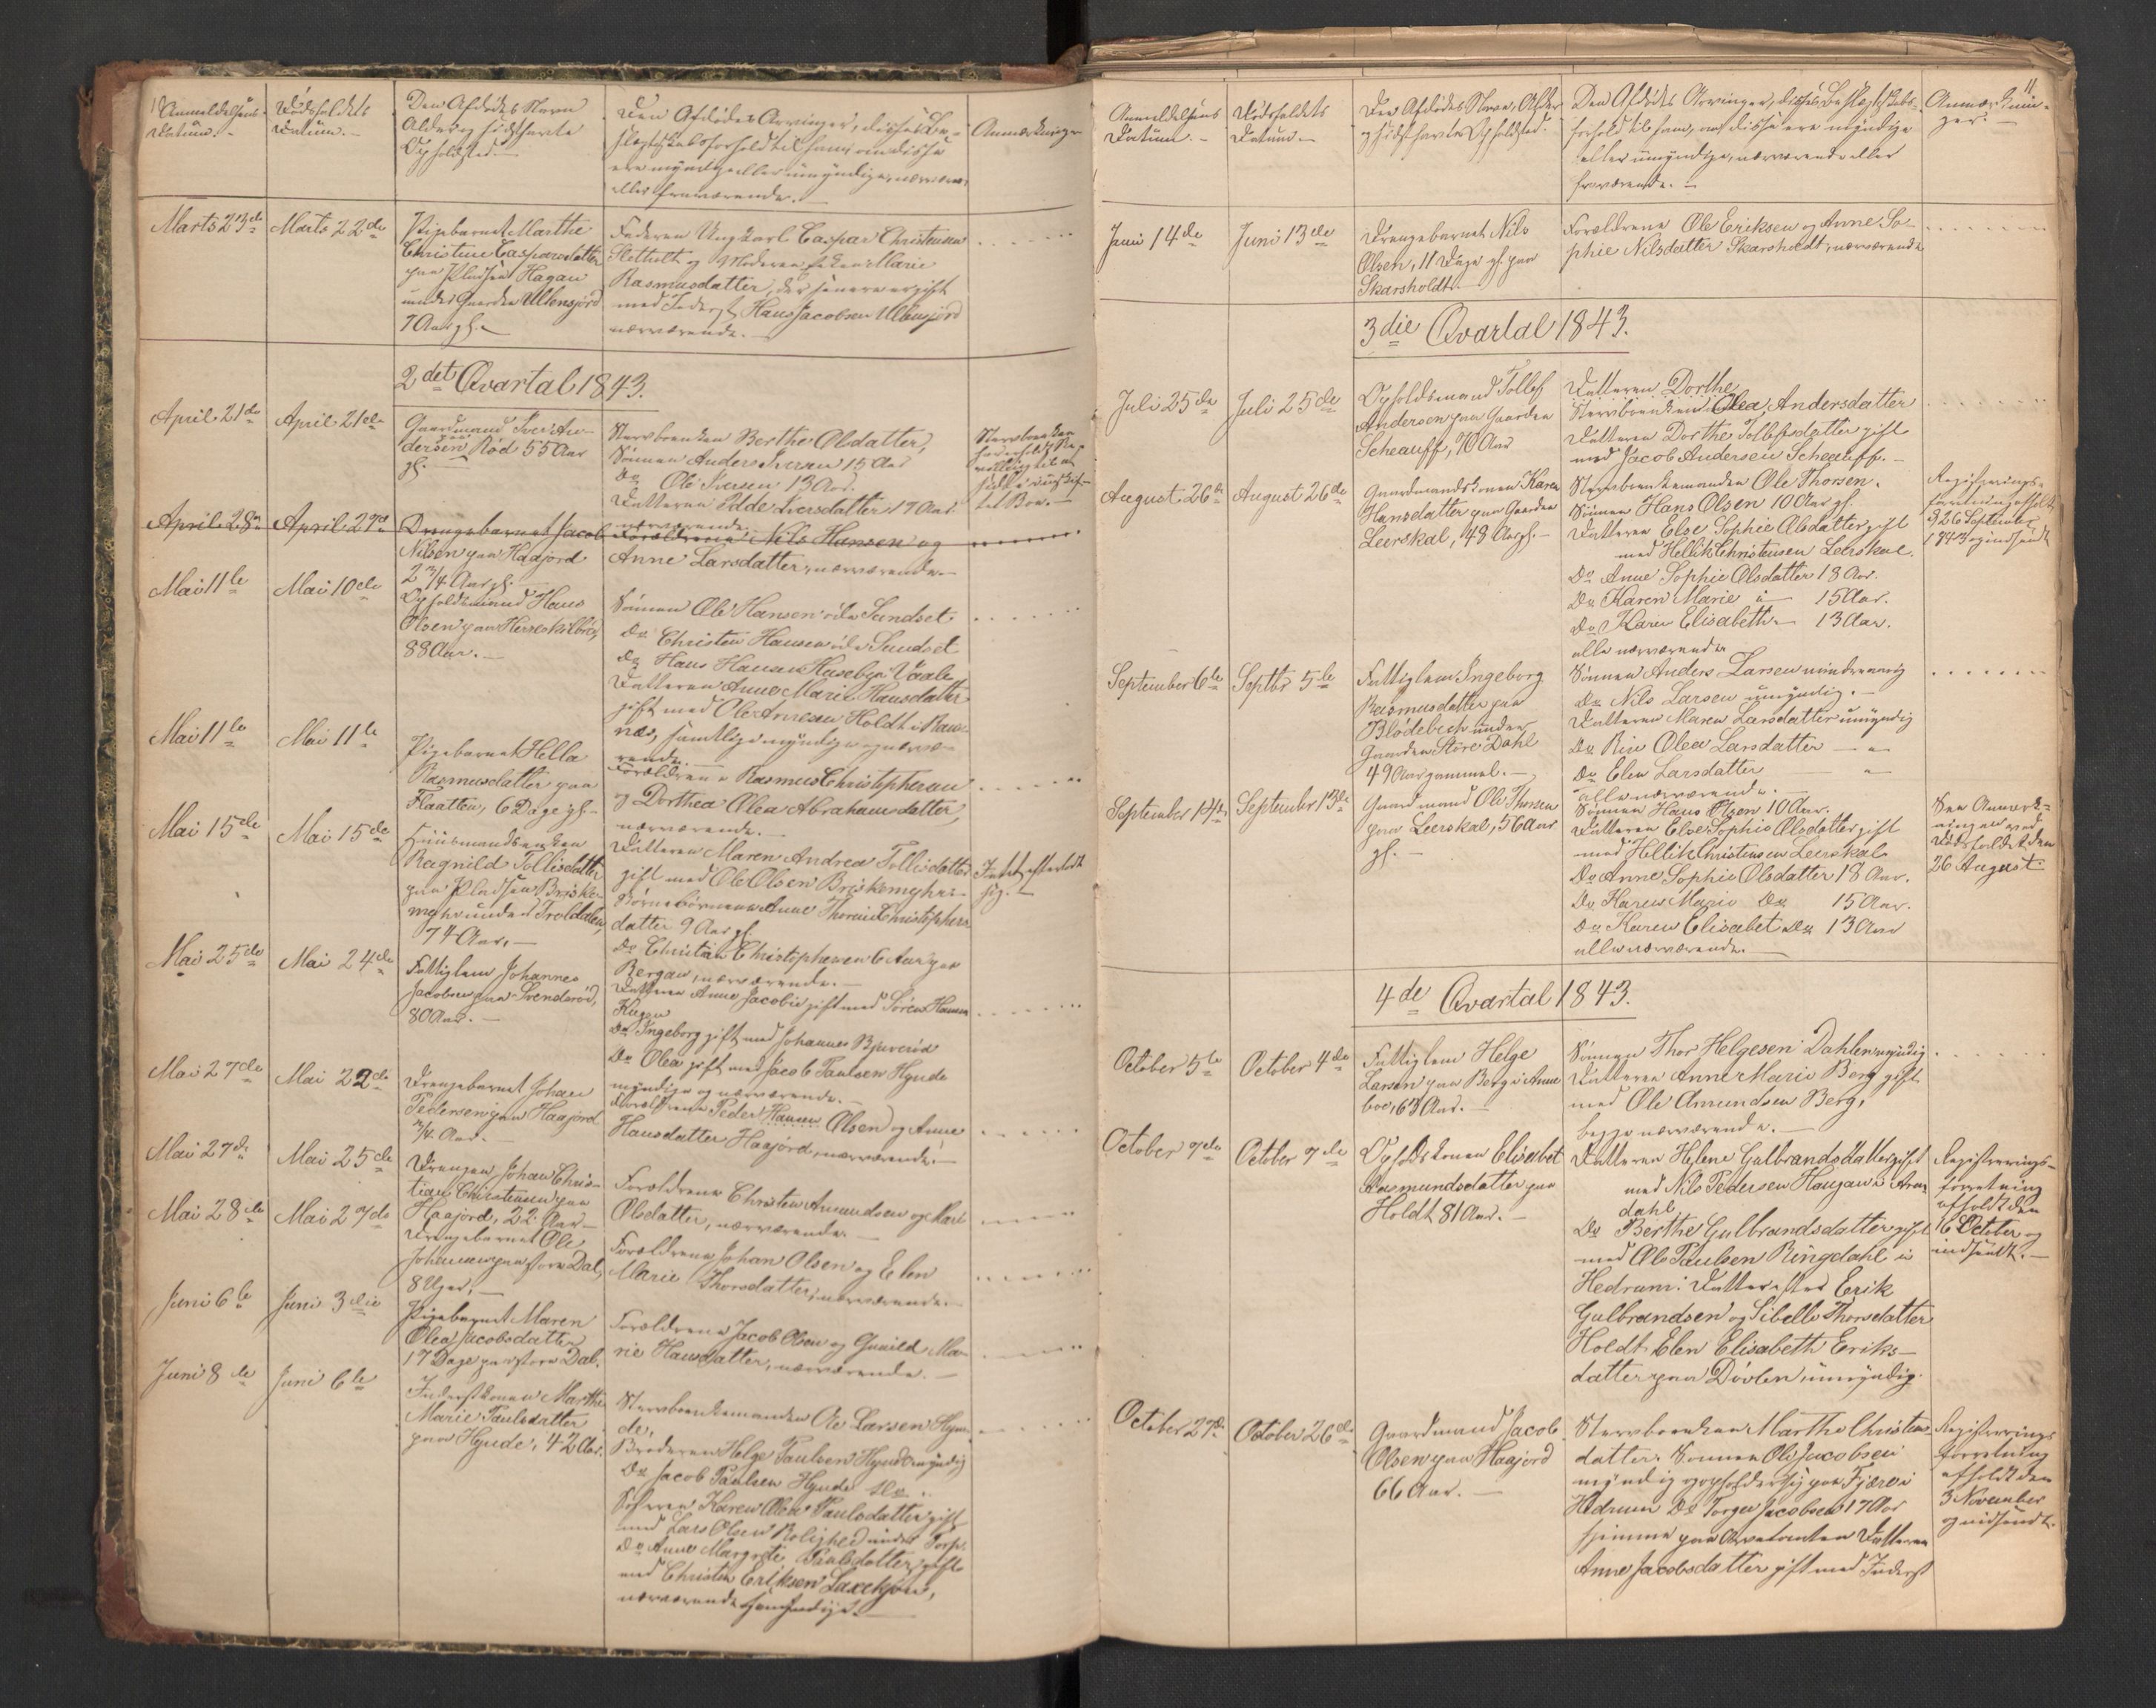 Anmeldelsens
Datum.
Dødsfaldets
Datum.
Den Afdødes Navn
Alder og sidst havte
Opholdssted.
Den Afdødes Arvinger, disses
Slægtskabsforhold til ham om disse
ere myndige eller umyndige, nærværende
eller fraværende.
Anmærkninger
Marts 23de
Marts 22de
Pigebarnet Marthe
Christine Caspersdatter
paa Pladsen Hagan
under Gaarden Ullensjord
7 Aar gl.
Faderen Ungkarl Caspar Christensen
Slettholt og Moderen Marie
Rasmusdatter, der senere er gift
med Inderst Hans Jacobsen Ullensjord
nærværende.
2det Qvartal 1843.
April 21de
April 21de
Gaardmand Iver An-
dersen Rød 55 Aar
gl.
Stervboenken Berthe Olsdatter,
Sønnen Anders Iversen 15 Aar
Do Ole Iversen 13 Aar.
Datteren Edde Iversdatter 17 Aar
nærværende.
April 28de
April 27de
Drengebarnet Jacob
Nilsen paa Haajord
2 3/4 Aar gl.
Forældrene Nils Hansen og
Anne Larsdatter, nærværende.
Mai 11te
Mai 10de
Opholdsmand Hans
Olsen paa Herreskilbrek,
88 Aar.
Sønnen Ole Hansen Sundset
Do Christen Hansen Sundset
Do Hans Hansen Huseby i Vaale
Datteren Anne Marie Hansdatter
gift med Ole Arnesen Holdt i Ram-
næs, samtlige myndige og nærvæ-
rende.
Mai 11te
Mai 11te
Pigebarnet Hella
Rasmusdatter paa
Flaatten, 6 Dage gl.
Forældrene Rasmus Christophersen
og Dorthea Olea Abrahamsdatter,
nærværende.
Mai 15de
Mai 15de
Huusmandsenken
Ragnild Tollisdatter
paa Pladsen Briske-
myhr under Troldalen,
74 Aar.
Datteren Maren Andrea Tollisdatter
gift med Ole Olsen Briskemyhr
Børnebørnene Anne Thorine Christophers-
datter 9 Aar gl.
Do Christian Christophersen 6 Aar paa
Bergan, nærværende.
Intet efterladt
sig.
Mai 25de
Mai 24de
Fattiglem Johannes
Jacobsen paa Svendsrød,
80 Aar.
Datteren Anne Jacobie gift med Søren Hansen
Hagan
Do Ingeborg gift med Johannes Bjuerød
Do Olea gift med Jacob Paulsen Hynde
myndige og nærværende.
Mai 27de
Mai 22de
Drengebarnet Johan
Pedersen paa Haajord
3/4 Aar.
Forældrene Peder Hansen Olsen og Anne
Hansdatter Haajord, nærværende.
Mai 27de
Mai 25de
Drengen Johan Chris-
tian Christensen paa
Haajord, 22 Aar
Forældrene Christen Amundsen og Kari
Olsdatter, nærværende.
Mai 28de
Mai 27de
Drengebarnet Ole
Johansen paa store Dal,
8 Uger.
Forældrene Johan Olsen og Elen
Marie Thorsdatter, nærværende.
Juni 6te
Juni 3die
Pigebarnet Maren
Olea Jacobsdatter
17 Dage paa store Dal.
Forældrene Jacob Olsen og Gunild Ma-
rie Hansdatter, nærværende.
Juni 8de
Juni 6te
Inderstkonen Marthe
Marie Paulsdatter
paa Hynde, 42 Aar.
Stervboenkemanden Ole Larsen Hyn-
de,
Broderen Helge Paulsen Hynde myndig
Do Jacob Paulsen Hynde
Søsteren Karen Olea Paulsdatter gift
med Lars Olsen Rolighed under Torp.
Do Anne Margrete Paulsdatter, gift
med Christen Eriksen
nærværende
11
Anmeldelsens
Datum.
Dødsfaldets
Datum.
Den Afdødes Navn, Alder
og sidst havte Opholdssted.
Den Afdødes Arvinger, disses Slægtskabs-
forhold til ham, om disse ere myndige
eller umyndige, nærværende eller
fraværende.
Anmærknin-
ger.
Juni 14de
Juni 13de
Drengebarnet Nils
Olsen, 11 Dage gl. paa
Skarsholdt.
Forældrene Ole Eriksen og Anne So-
phie Nilsdatter Skarsholdt, nærværende
3die Qvartal 1843.
Juli 25de
Juli 25de
Opholdsmand Tollef
Andersen paa Gaarden
Scheauff, 70 Aar
Datteren Dorthe
Stervboenken Olea Andersdatter
Datteren Dorthe Tollefsdatter gift
med Jacob Andersen Scheauff.
August 26de
August 26de
Gaardmandskonen Karen
Hansdatter paa Gaarden
Leerskal, 49 Aar gl.
Stervboenkemanden Ole Thorsen.
Sønnen Hans Olsen 10 Aar gl.
Datteren Else Sophie Olsdatter gift
med Hellik Christensen Leerskal.
Do Anne Sophie Olsdatter 18 Aar.
Do Karen Marie " 15 Aar.
Do Karen Elisabeth " 13 Aar.
alle nærværende
Registrerings-
forretning afholdt
d 26 September
1843 og indsendt
September 6te
Septbr 5te
Fattiglem Ingeborg
Rasmusdatter paa
Blødebech under
Gaarden Store Dahl
49 Aar gammel.
Sønnen Anders Larsen mindreaarig
Do Nils Larsen umyndig.
Datteren Maren Larsdatter umyndig
Do Rine Olea Larsdatter "
Do Elen Larsdatter "
alle nærværende.
September 14de
September 13de
Gaardmand Ole Thorsen
paa Leerskal, 56 Aar
gl.
Sønnen Hans Olsen 10 Aar.
Datteren Else Sophie Olsdatter gift
med Hellik Christensen Leerskal
Do Anne Sophie Olsdatter 18 Aar.
Do Karen Marie Do 15 Aar.
Do Karen Elisabet Do 13 Aar
alle nærværende.
See Anmærk-
ningen ved
Dødsfaldet den
26 August.
4de Qvartal 1843.
October 5te
October 4de
Fattiglem Helge
Larsen paa Berg i Arne
boe, 63 Aar.
Sønnen Thor Helgesen Dahlen myndig
Datteren Anne Marie Berg gift
med Ole Amundsen Berg,
begge nærværende.
October 7de
October 7de
Opholdskonen Elisabet
Rasmundsdatter paa
Holdt 81 Aar.
Datteren Helene Gulbrandsdatter gift
med Nils Pedersen Haugan i Arne
dahl
Do Berthe Gulbrandsdatter gift
med Ole Paulsen Ringdahl i
Hedrum. Datter efter Erik
Gulbrandsen og Sibelle Thorsdatter
Holdt Elen Elisabeth Eriks-
datter paa Døvlen umyndig.
Registrerings-
forretning
afholdt den
16 October og
indsendt.
October 27de
October 26de
Gaardmand Jacob
Olsen paa Haajord
66 Aar.
Stervboenken Marthe Christens
datter. Sønnen Ole Jacobsen
myndig opholder sig paa Fjære i
Hedrum Do Torger Jacobsen 17 Aar
hjemme paa Datteren
Anne Jacobsdatter gift med Inderst
Registrerings
forretning
afholdt den
3 November
og indsendt.